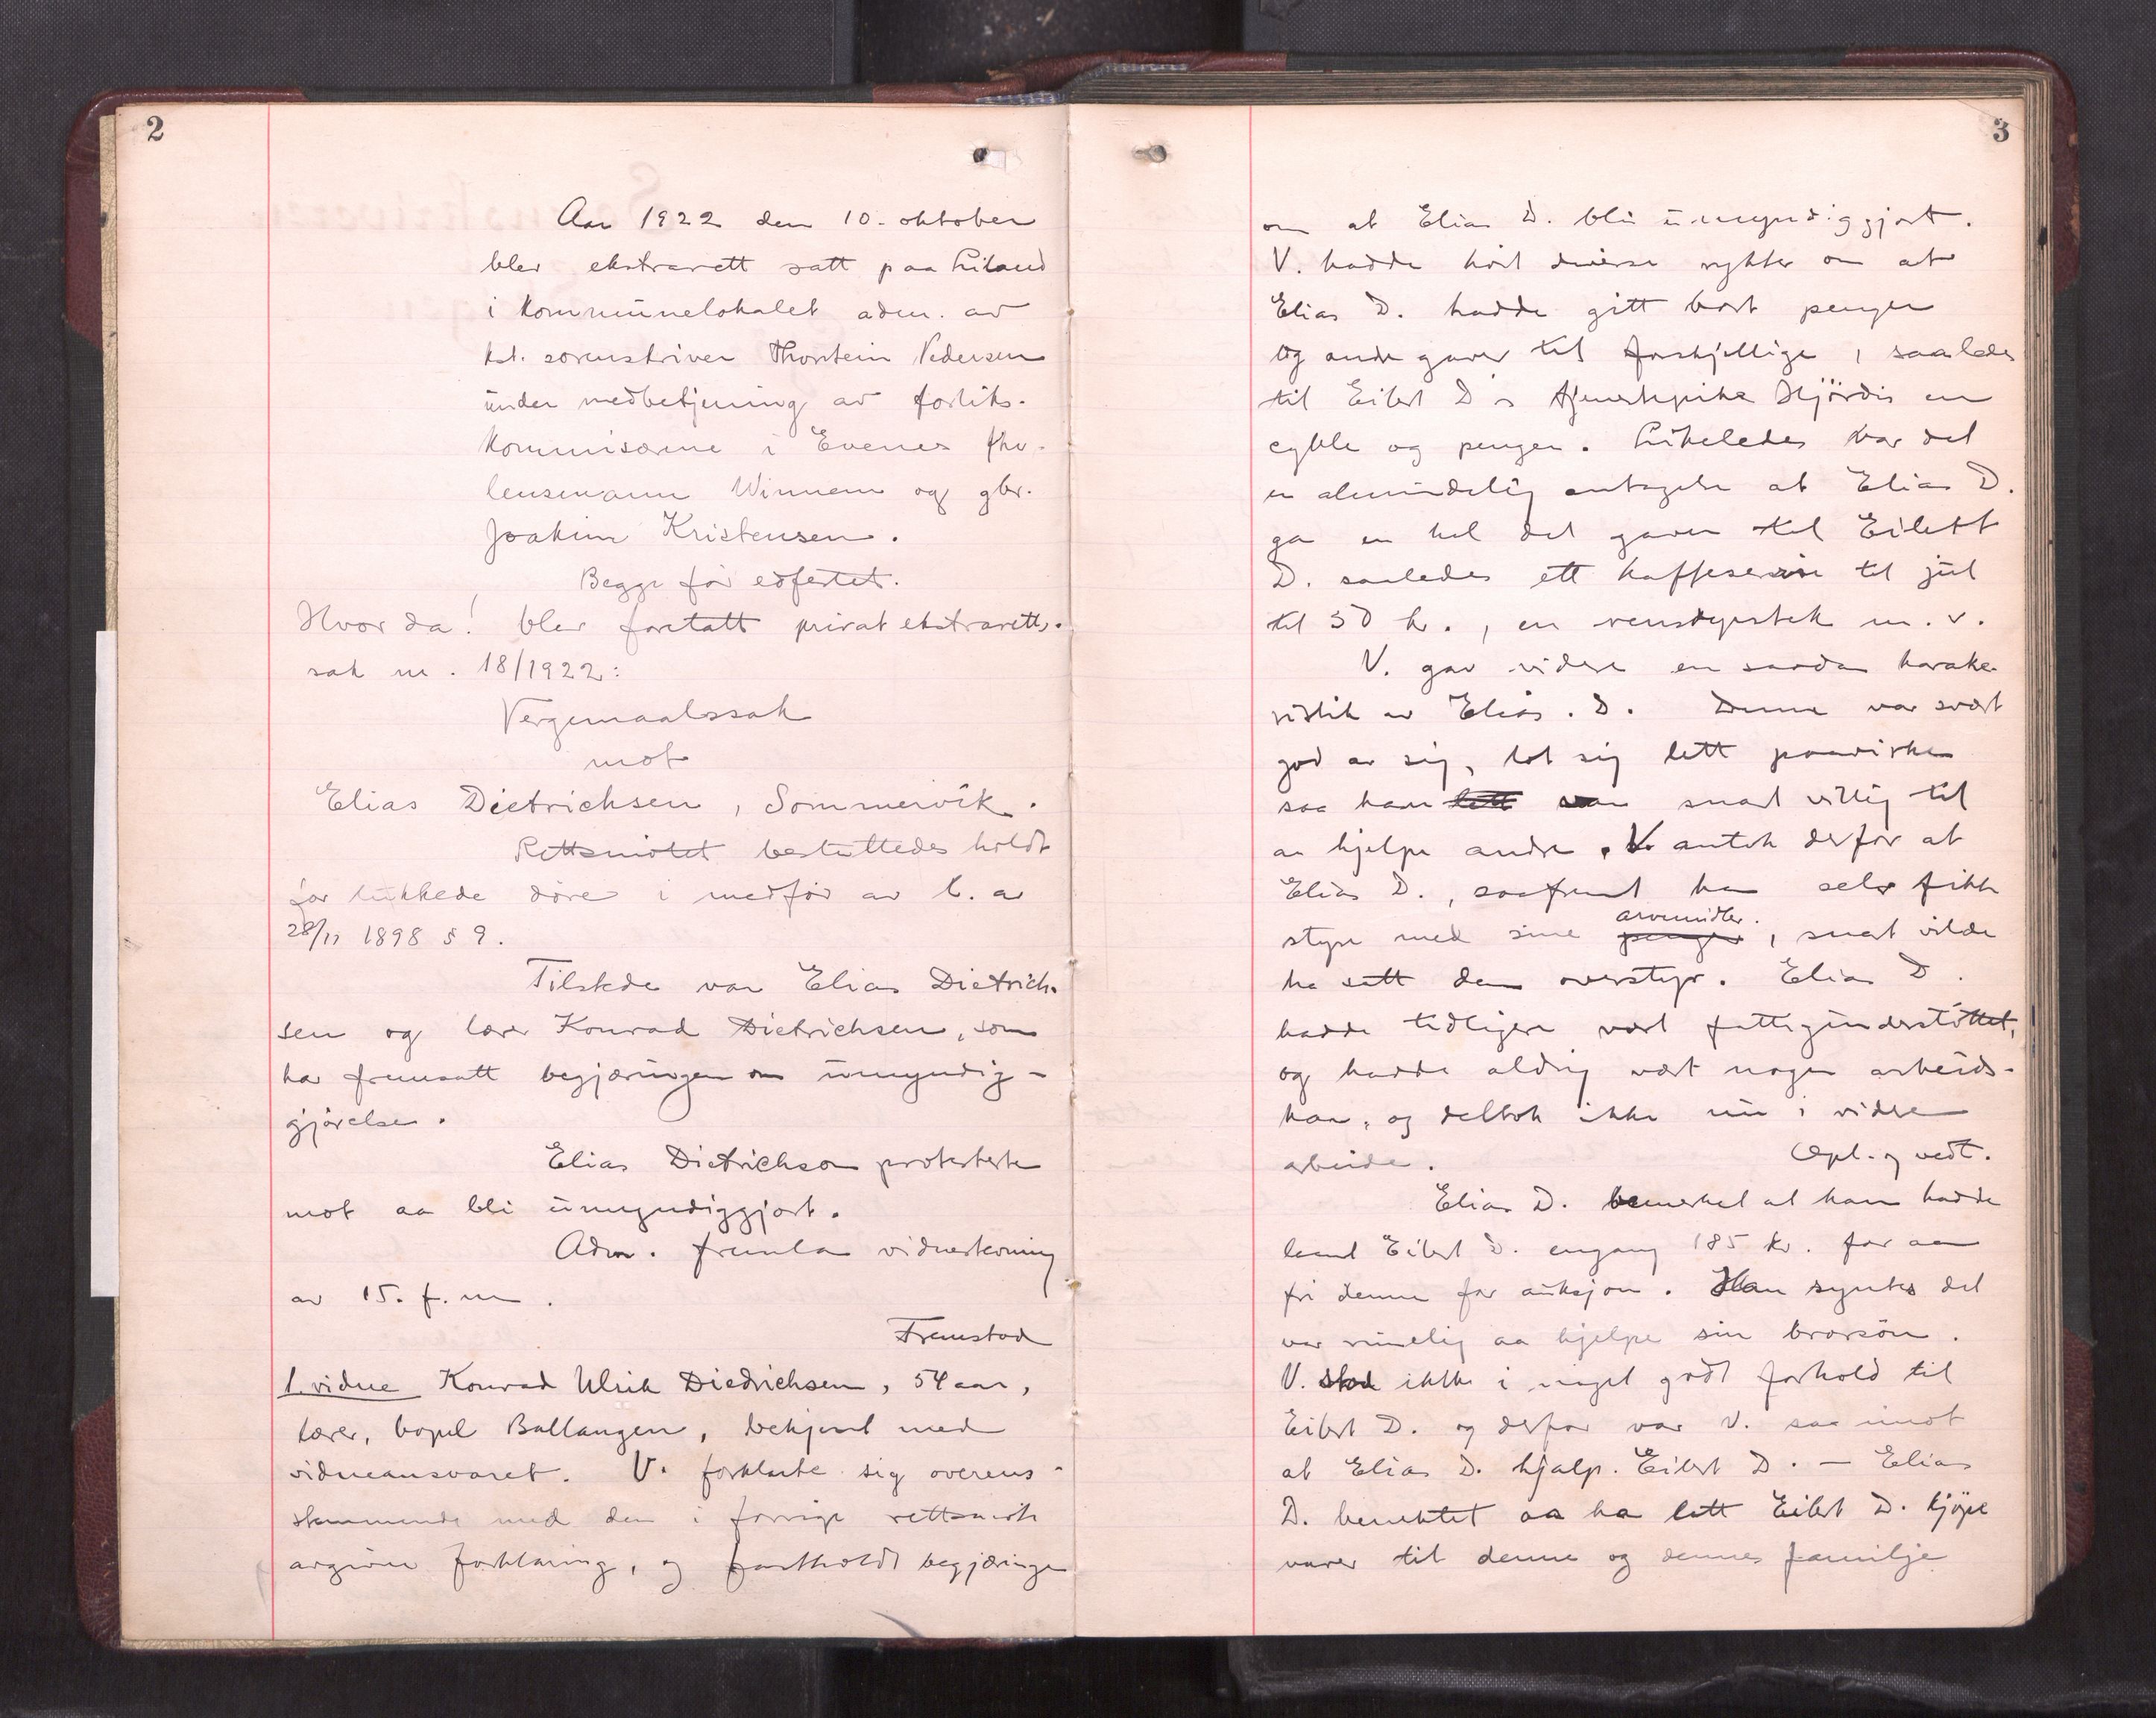 2
Aar 1922 den 10. oktober
blev ekstrarett satt paa Liland
i kommunelokalet adm. av
kst. sorenskriver Thorstein Pedersen
under medbetjening av forliks-
kommisærne i Evenes fhv.
lensmann Winnem og gbr.
Joakim Kristensen.
Begge før edfestet.
Hvor da! blev foretatt privat ekstraretts-
sak nr. 18/1922:
Vergemaalssak
mot
Elias Dietrichsen, Sommervik.
Rettsmøtet besluttedes holdt
for lukkede døre i medfør av l. av
28/11 1898 § 9.
Tilstede var Elias Dietrich-
sen og lærer Konrad Dietrichsen, som
har fremsatt begjæringen om umyndig-
gjørelse.
Elias Dietrichsen protesterte
mot aa bli umyndiggjort.
Adm. fremla vidnestevning
av 15. f. m.
Fremstod
1. vidne Konrad Ulrik Diedrichsen, 54 aar,
lærer, bopel Ballangen, bekjent med
vidneansvaret. V. forklarte sig overens-
stemmende med den i forrige rettsmøte
avgivne forklaring, og fastholdt begjæringen
3
om at Elias D. blir umyndiggjort.
V. hadde hørt diverse rykter om at
Elias D. hadde gitt bort penger
og andre gaver til forskjellige, saaledes
til Eilert D's tjenestepike Hjørdis en
cykle og penger. Likeledes var det
en almindelig antagelse at Elias D.
ga en hel del gaver til Eilert
D. saaledes ett kaffeservise til jul
til 50 kr., en rensdyrstek m. v.
V. gav videre en saadan karakte-
ristik av Elias. D. Denne var svært
god av sig, lot sig lett paavirke
saa han lett var snart villig til
aa hjelpe andre. V. antok derfor at
Elias D., saafremt han selv fikk
arvemidler.
styre med sine penger, snart vilde
ha satt dem overstyr. Elias D.
hadde tidligere vært fattigunderstøttet,
og hadde aldrig vært nogen arbeids-
kar, og deltok ikke nu i videre
arbeide. Opl. og vedt.
Elias D. bemerket at han hadde
laant Eilert D. engang 185 kr. for aa
fri denne for auksjon. Han syntes det
var rimelig aa hjelpe sin brorsøn.
V. stod ikke i noget godt forhold til
Eilert D. og derfor var V. saa imot
at Elias D. hjalp. Eilert D. – Elias
D. benektet aa ha latt Eilert D. kjøpe
varer til denne og dennes familje